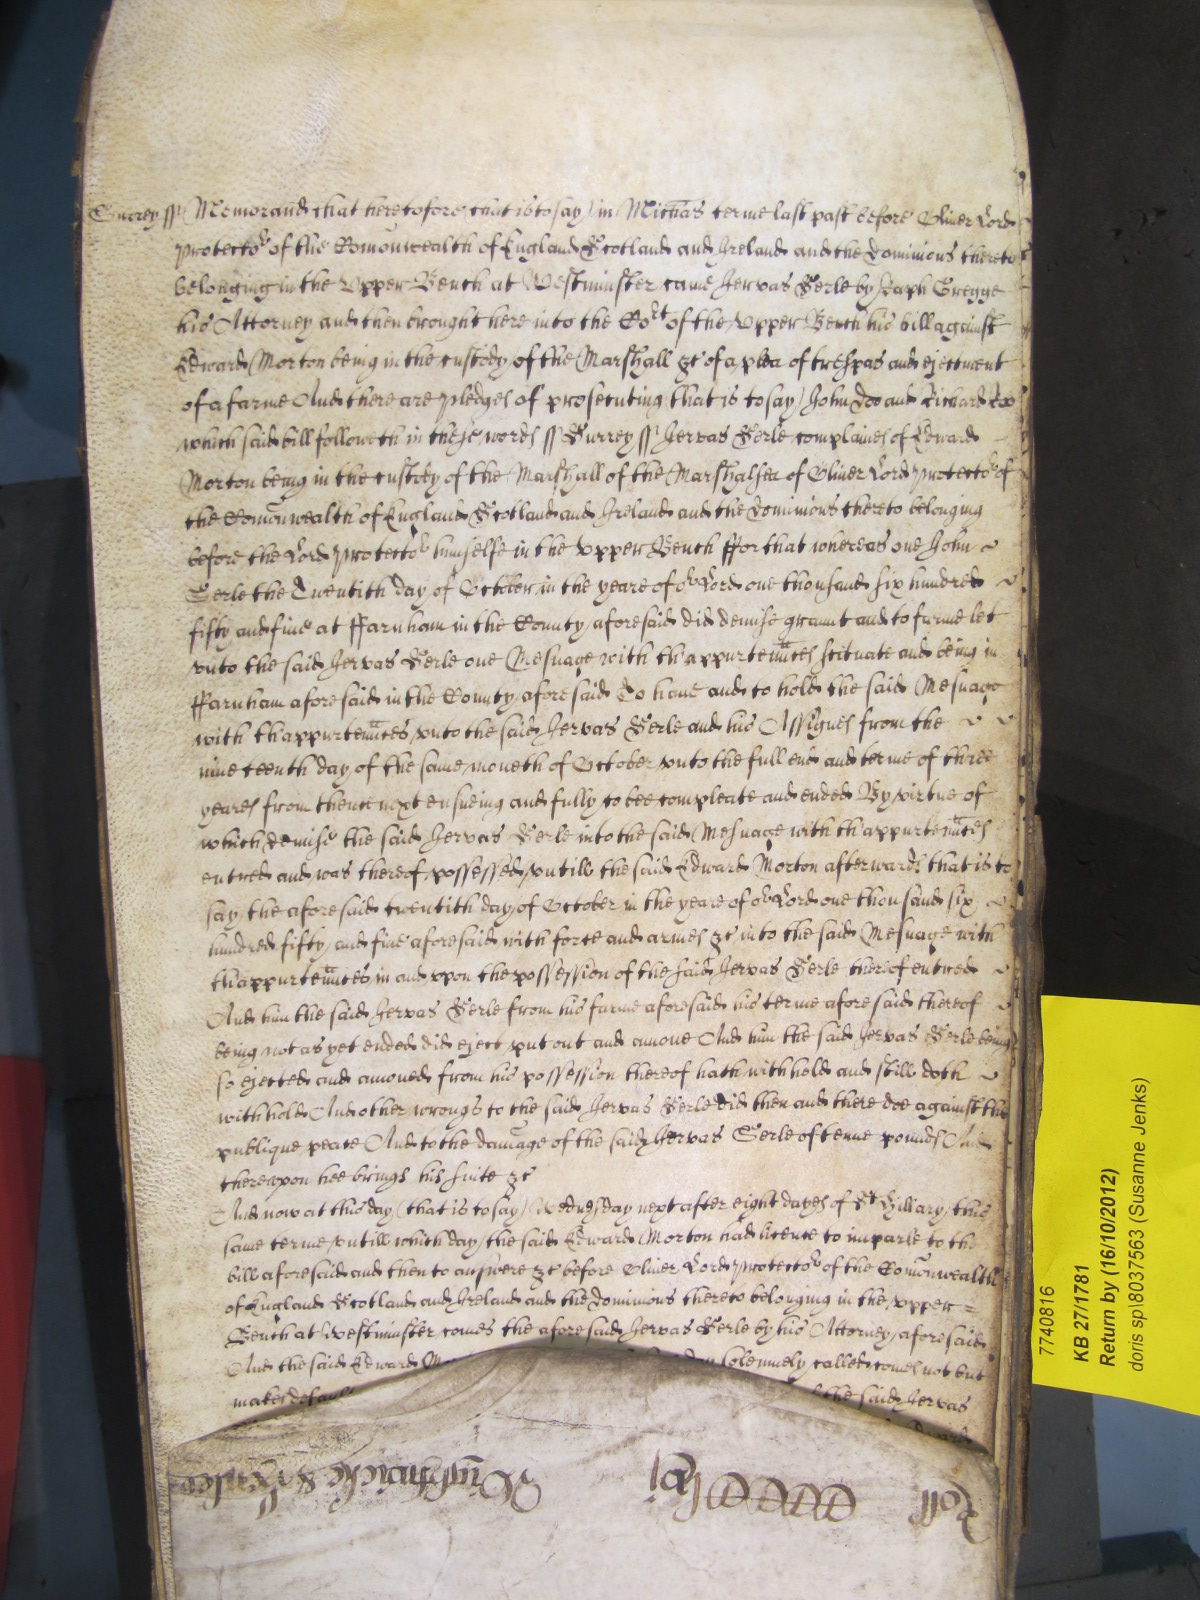 Surrey ss Memorand that heretofore (that is to say) in Michas terme last past before Oliver Lord
Protector of the Comonwealth of England Scotland and Ireland and the Dominions thereto
belonging in the Upper Bench at Westminster came Jervas Serle by Raph Gregge
his Attorney and then brought here into the Cort of the Upper Bench his bill against
Edward Morton being in the custody of the Marshall &c of a plea of trespas and ejectment
of a farme And there are pledges of prosecuting (that is to say) John Doo and Richard Roo
which said bill followeth in these words ss Surrey ss Jervas Serle complaines of Edward
Morton being in the custody of the Marshall of the Marshalsea of Oliver Lord Protector of
the Comonwealth of England Scotland and Ireland and the Dominions thereto belonging
before the Lord Protector himselfe in the Upper Bench ffor that whereas one John
Serle the Twentith day of October in the yeare of our Lord one thousand six hundred
fifty and five at ffarnham in the County aforesaid did demise graunt and to farme let
unto the said Jervas Serle one Mesuage with thappurtennces scituate and being in
ffarnham aforesaid in the County aforesaid To have and to hold the said Mesuage
with thappurtennces unto the said Jervas Serle and his Assignes from the
nine teenth day of the same moneth of October unto the full end and terme of three
yeares from thence next ensueing and fully to bee compleate and ended By virtue of
which demise the said Jervas Serle into the said Mesuage with thappurtennces
entred and was thereof possessed untill the said Edward Morton afterwards that is to
say the aforesaid twentith day of October in the yeare of our Lord one thousand six
hundred fifty and five aforesaid with force and armes &c into the said Mesuage with
thappurtennces in and upon the possession of the said Jervas Serle thereof entred
And him the said Jervas Serle from his farme aforesaid his terme aforesaid thereof
being not as yet ended did eject put out and amove And him the said Jervas Serle being
so ejected and amoved from his possession thereof hath withheld and still doth
withhold And other wrongs to the said Jervas Serle did then and there doe against the
publique peace And to the damage of the said Jervas Serle of tenne pounds And
thereupon hee brings his suite &c
And now at this day (that is to say) Wednesday next after eight dayes of St Hillary this
same terme untill which day the said Edward Morton had licence to imparle to the
bill aforesaid and then to answere &c before Oliver Lord Protector of the Comonwealth
of England Scotland and Ireland and the Dominions thereto belonging in the Upper
Bench at Westminster comes the aforesaid Jervas Serle by his Attorney aforesaid
And the said Edward solemnely called comes not but
makes the said Jervas
Roll
7740816
KB 27/1781
Return by (16/10/2012)
doris sp\8037563 (Susanne Jenks)